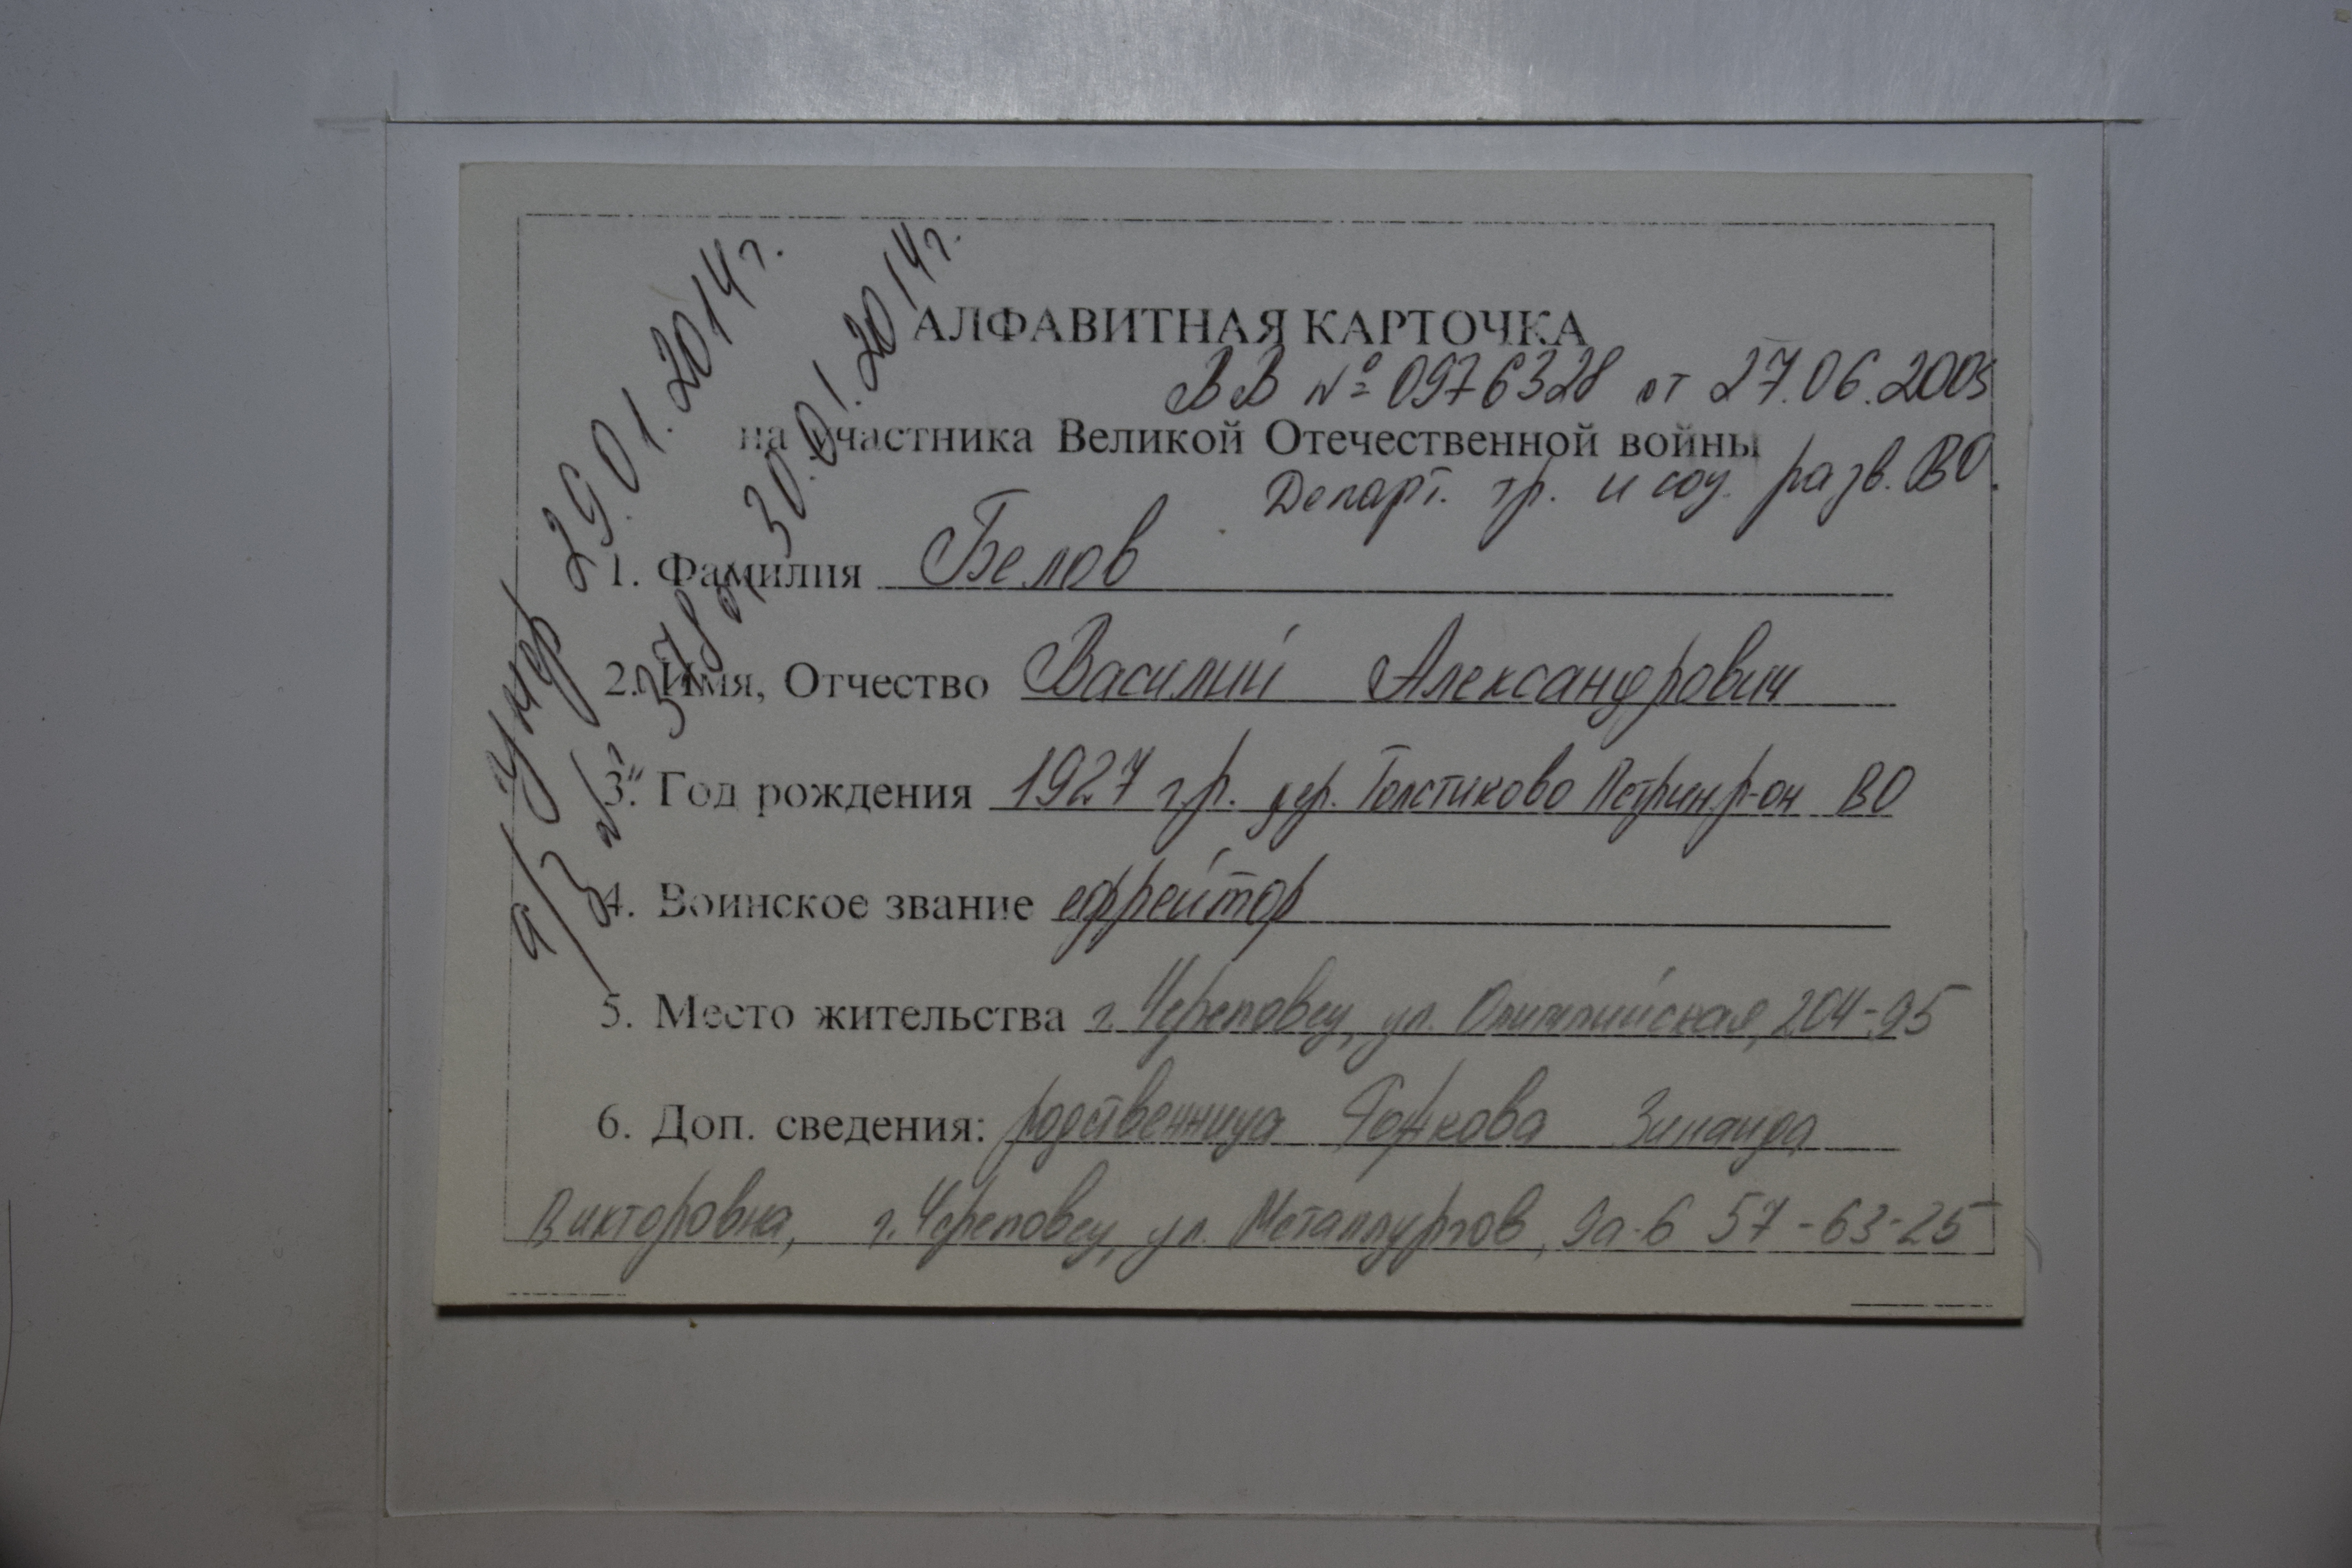 АЛФАВИТНАЯ КАРТОЧКА
ВВ № 0976328 от 27.06.2005
на участника Великой Отечественной войны
Департ. тр. и соц. разв. ВО.
1. Фамилия Белов
2. Имя, Отчество Василий Александрович
3. Год рождения 1927 г.р. дер. Толстиково Петрин. р-он ВО
4. Воинское звание ефрейтор
5. Место жительства г. Череповец, ул. Олимпийская, 204-95
6. Доп. сведения: родственница Зинаида
Викторовна, г. Череповец, ул. Металлургов, 9а-6 57-63-25
Умер 29.01.2014г.
а/з № 378 от 30.01.2014г.